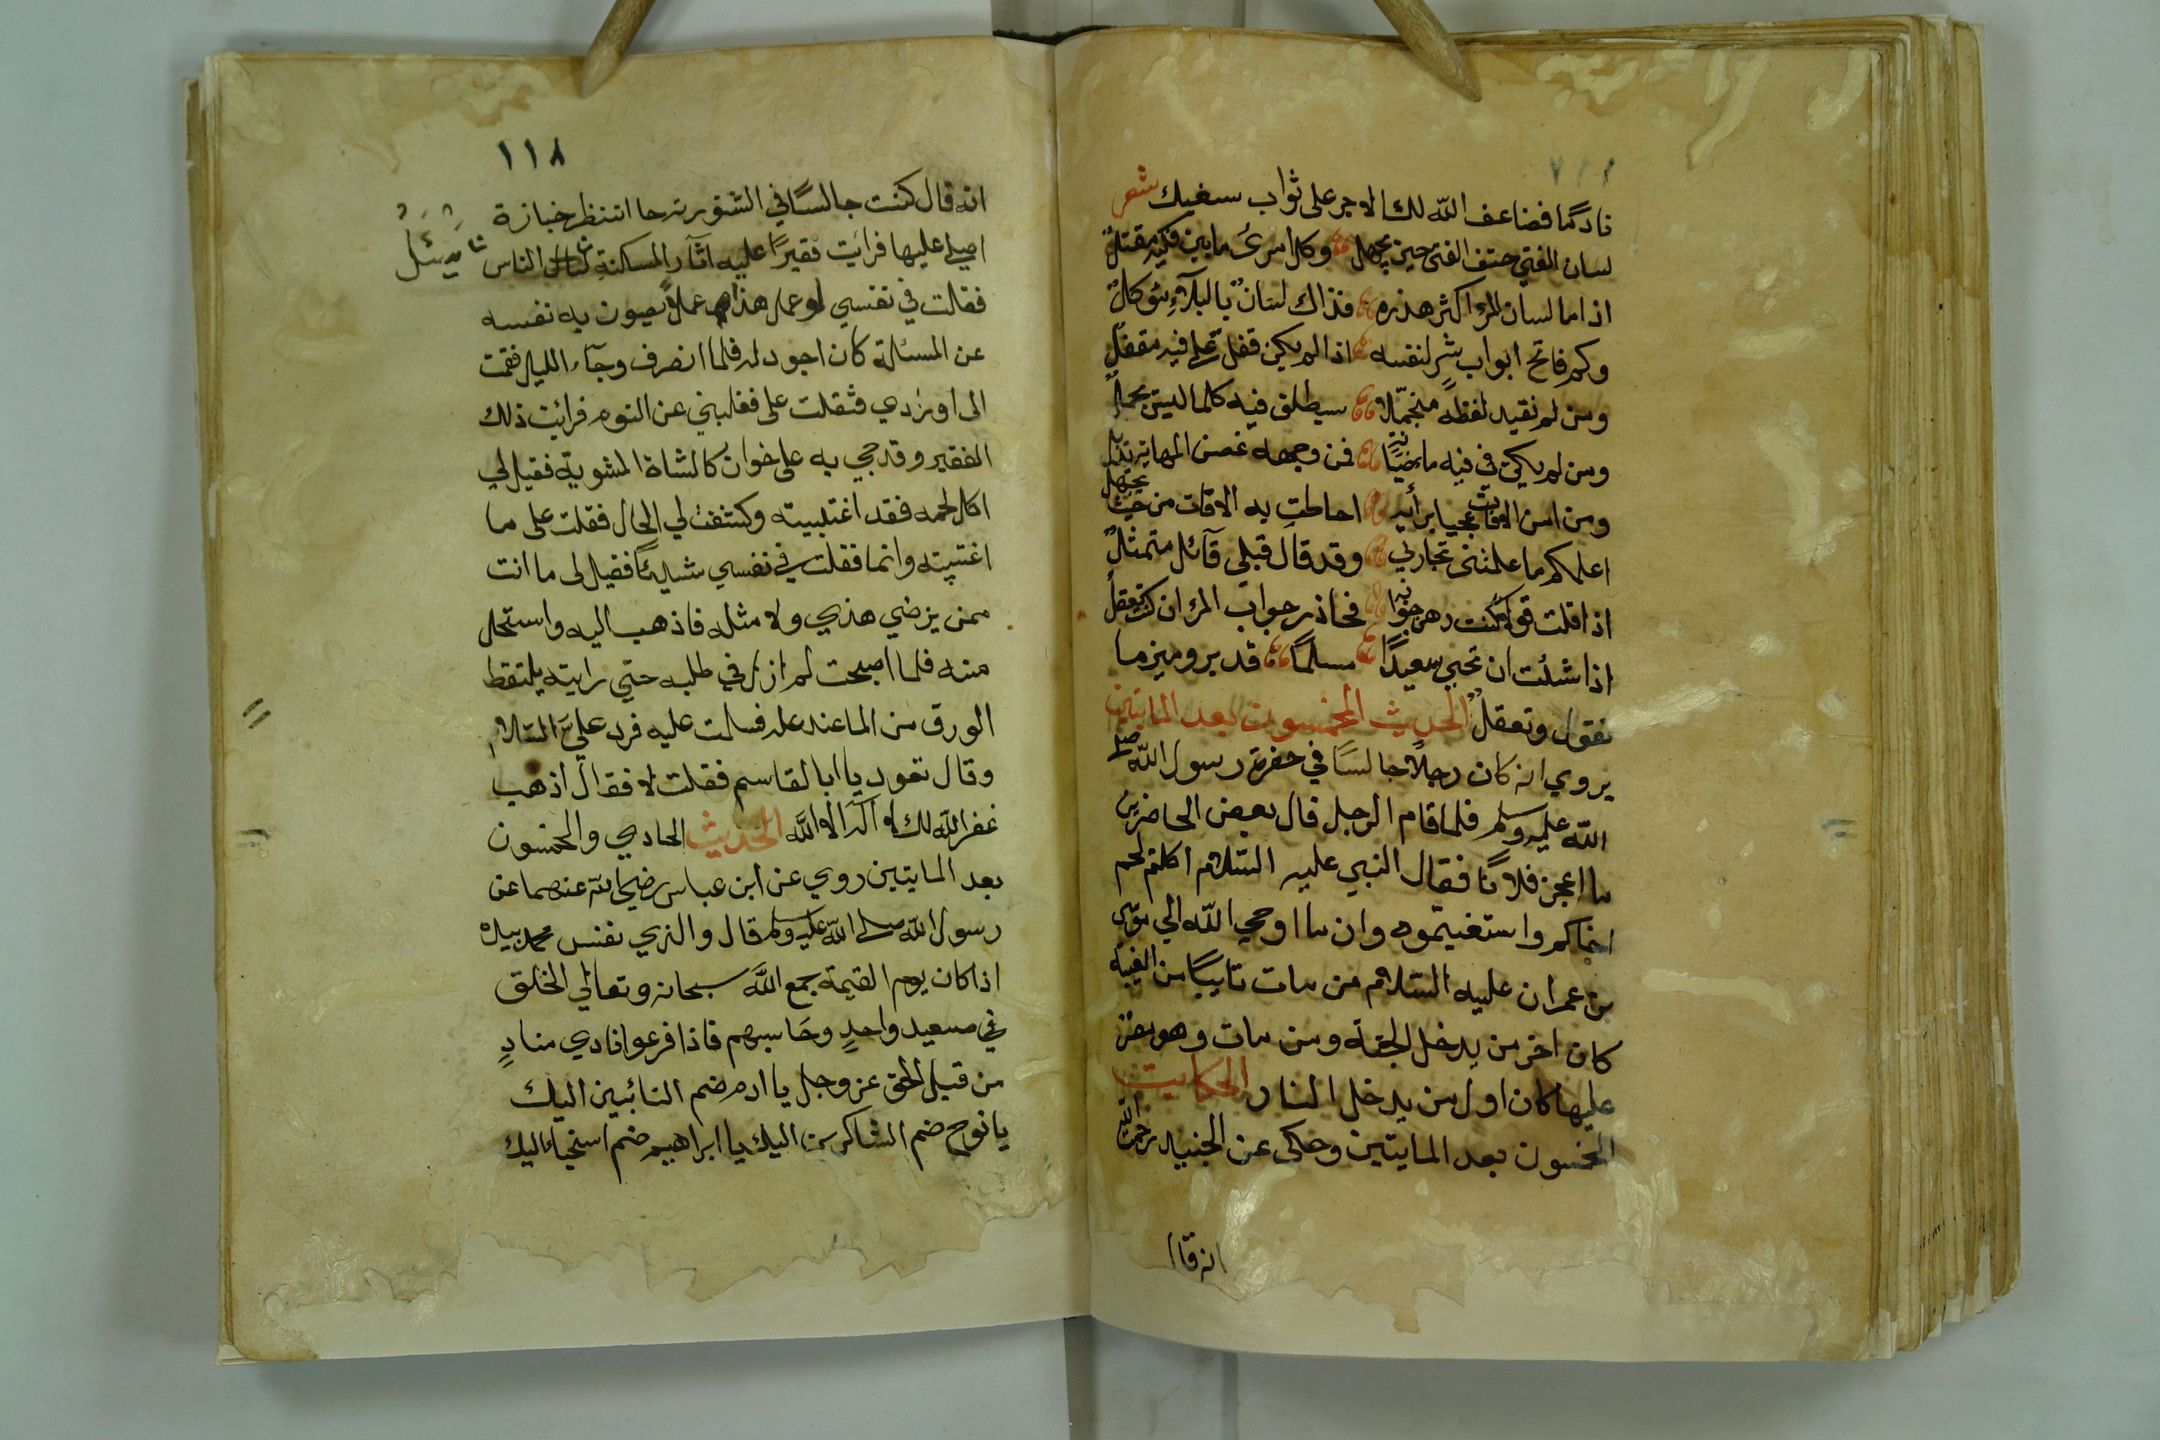 نادمًا فضاعف الله لك الاجر على ثواب سعيك شعر
لسان الفتى حتف الفتى حين يجهل وكل امرئ ما بين فكيه مقتل
اذا ما لسان المرء اكثر هذره فذاك لسان بالبلاء موكل
وكم فاتح ابواب شر لنفسه اذا لم يكن قفل على فيه مقفل
ومن لم يقيد لفظه متجملا سيطلق فيه كلما ليس يجمل
ومن لم يكن في فيه ماء صيانة فمن وجهه غصن المهابة يذبل
ومن امن الافات عجبا برأيه احاطت به الافات من حيث يجهل
اعلمكم ما علمتني تجاربي وقد قال قبلي قائل متمثل
اذا قلت قولا كنت رهن جوابه فحاذر جواب المرء ان كنت تعقل
اذا شئت ان تحيى سعيدًا مسلمًا فدبر وميز ما
تقول وتعقل الحديث الخمسون بعد المايتين
يروي انه كان رجلا جالسًا في حضرة رسول الله صلى
الله عليه وسلم فلما قام الرجل قال بعض الحاضرين
ما اعجز فلانًا فقال النبي عليه السلام اكلتم لحم
اخاكم واستغيتموه وان ما اوحي الله الي موسى
بن عمران عليه السلام من مات تايبًا من الغيبة
كان اخر من يدخل الجنة ومن مات وهو مصر
عليها كان اول من يدخل النار الحكايت
الخمسون بعد المايتين وحكى عن الجنيد رحمة الله
انه قال
١١٨
انه قال كنت جالسًا في الشونيزية حا انتظر جنازة
اصلي عليها فرائت فقيرًا عليه آثار المسكنة الناس يسئل
فقلت في نفسي لو عمل هذا عملاً يصون به نفسه
عن المسئلة كان اجود له فلما انصرف وجآء الليل فقمت
الى اورادي فثقلت على فغلبني عن النوم فرائت ذلك
الفقير وقد جي به على خوان كالشاة المشوية فقيل لي
اكل لحمه فقد اغتبيته وكشفت لي الحال فقلت على ما
اغتبيته وانما فقلت في نفسي شيئًا فقيل لي ما انت
ممن يرضي هذي ولا مثله فاذهب اليه واستحل
منه فلما اصبحت لم ازل في طلبه حتى رايته يلتقط
الورق من الماء عند فسلمت عليه فرد عليّ السلام
وقال تعود يا ابا القاسم فقلت لا فقال اذهب
غفر الله لك لا اله الا الله الحديث الحادي والخمسون
بعد المايتين روي عن ابن عباس رضي الله عنهما عن
رسول الله صلى الله عليه وسلم قال والذي نفس محمد بيده
اذا كان يوم القيمة جمع الله سبحانه وتعالي الخلق
في صعيد واحدٍ وحاسبهم فاذا فرغوا نادي منادٍ
من قبل الحق عز وجل يا ادم ضم التائبين اليك
يا نوح ضم الشاكرين اليك يا ابراهيم ضم اسخياء اليك